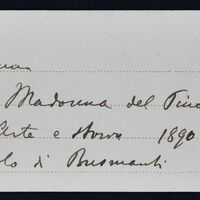 Madonna del Pino
Arte e Storia 1890
lo di Busmanti